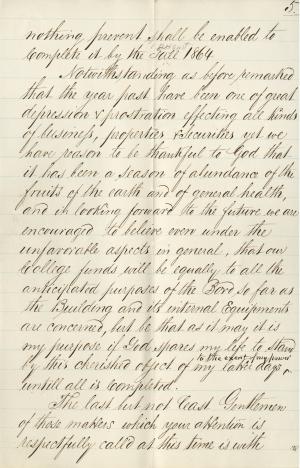 5.
nothing prevent shall be enabled to
complete it by the Fall 1864.
Notwithstanding as before remarked
that the year past have been one of great
depression & prostration effecting all kinds
of business, properties & Securities yet we
have reason to be thankful to God that
it has been a season of abundance of the
fruits of the earth and of general health,
and in looking forward to the future we are
encouraged to believe even under the
unfavorable aspects in general, that our
College funds will be equally to all the
anticipated purposes of the Bord so far as
the Building and its internal Equipments
are concerned, but be that as it may it is
my purpose if God spares my life to stand
to the extent of my power
by this cherished object of my later days
untill all is completed.
The last but not least Gentlemen
of those matters which your attention is
respectfully called at this time is with